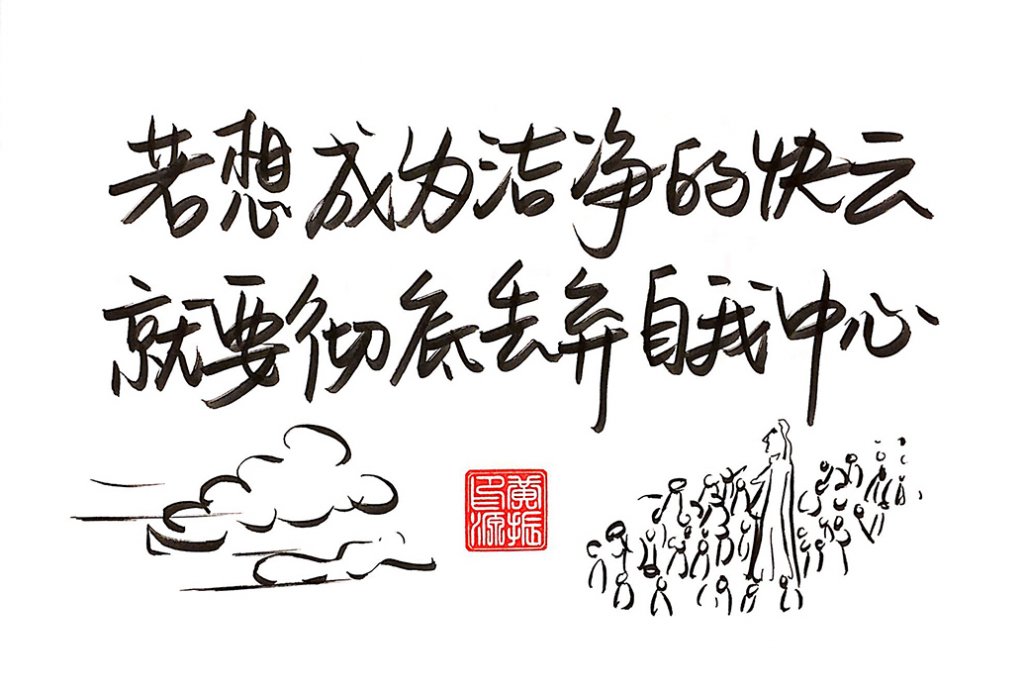 若想成为洁净的快云
就要彻底丢弃自我中心
黄振源印